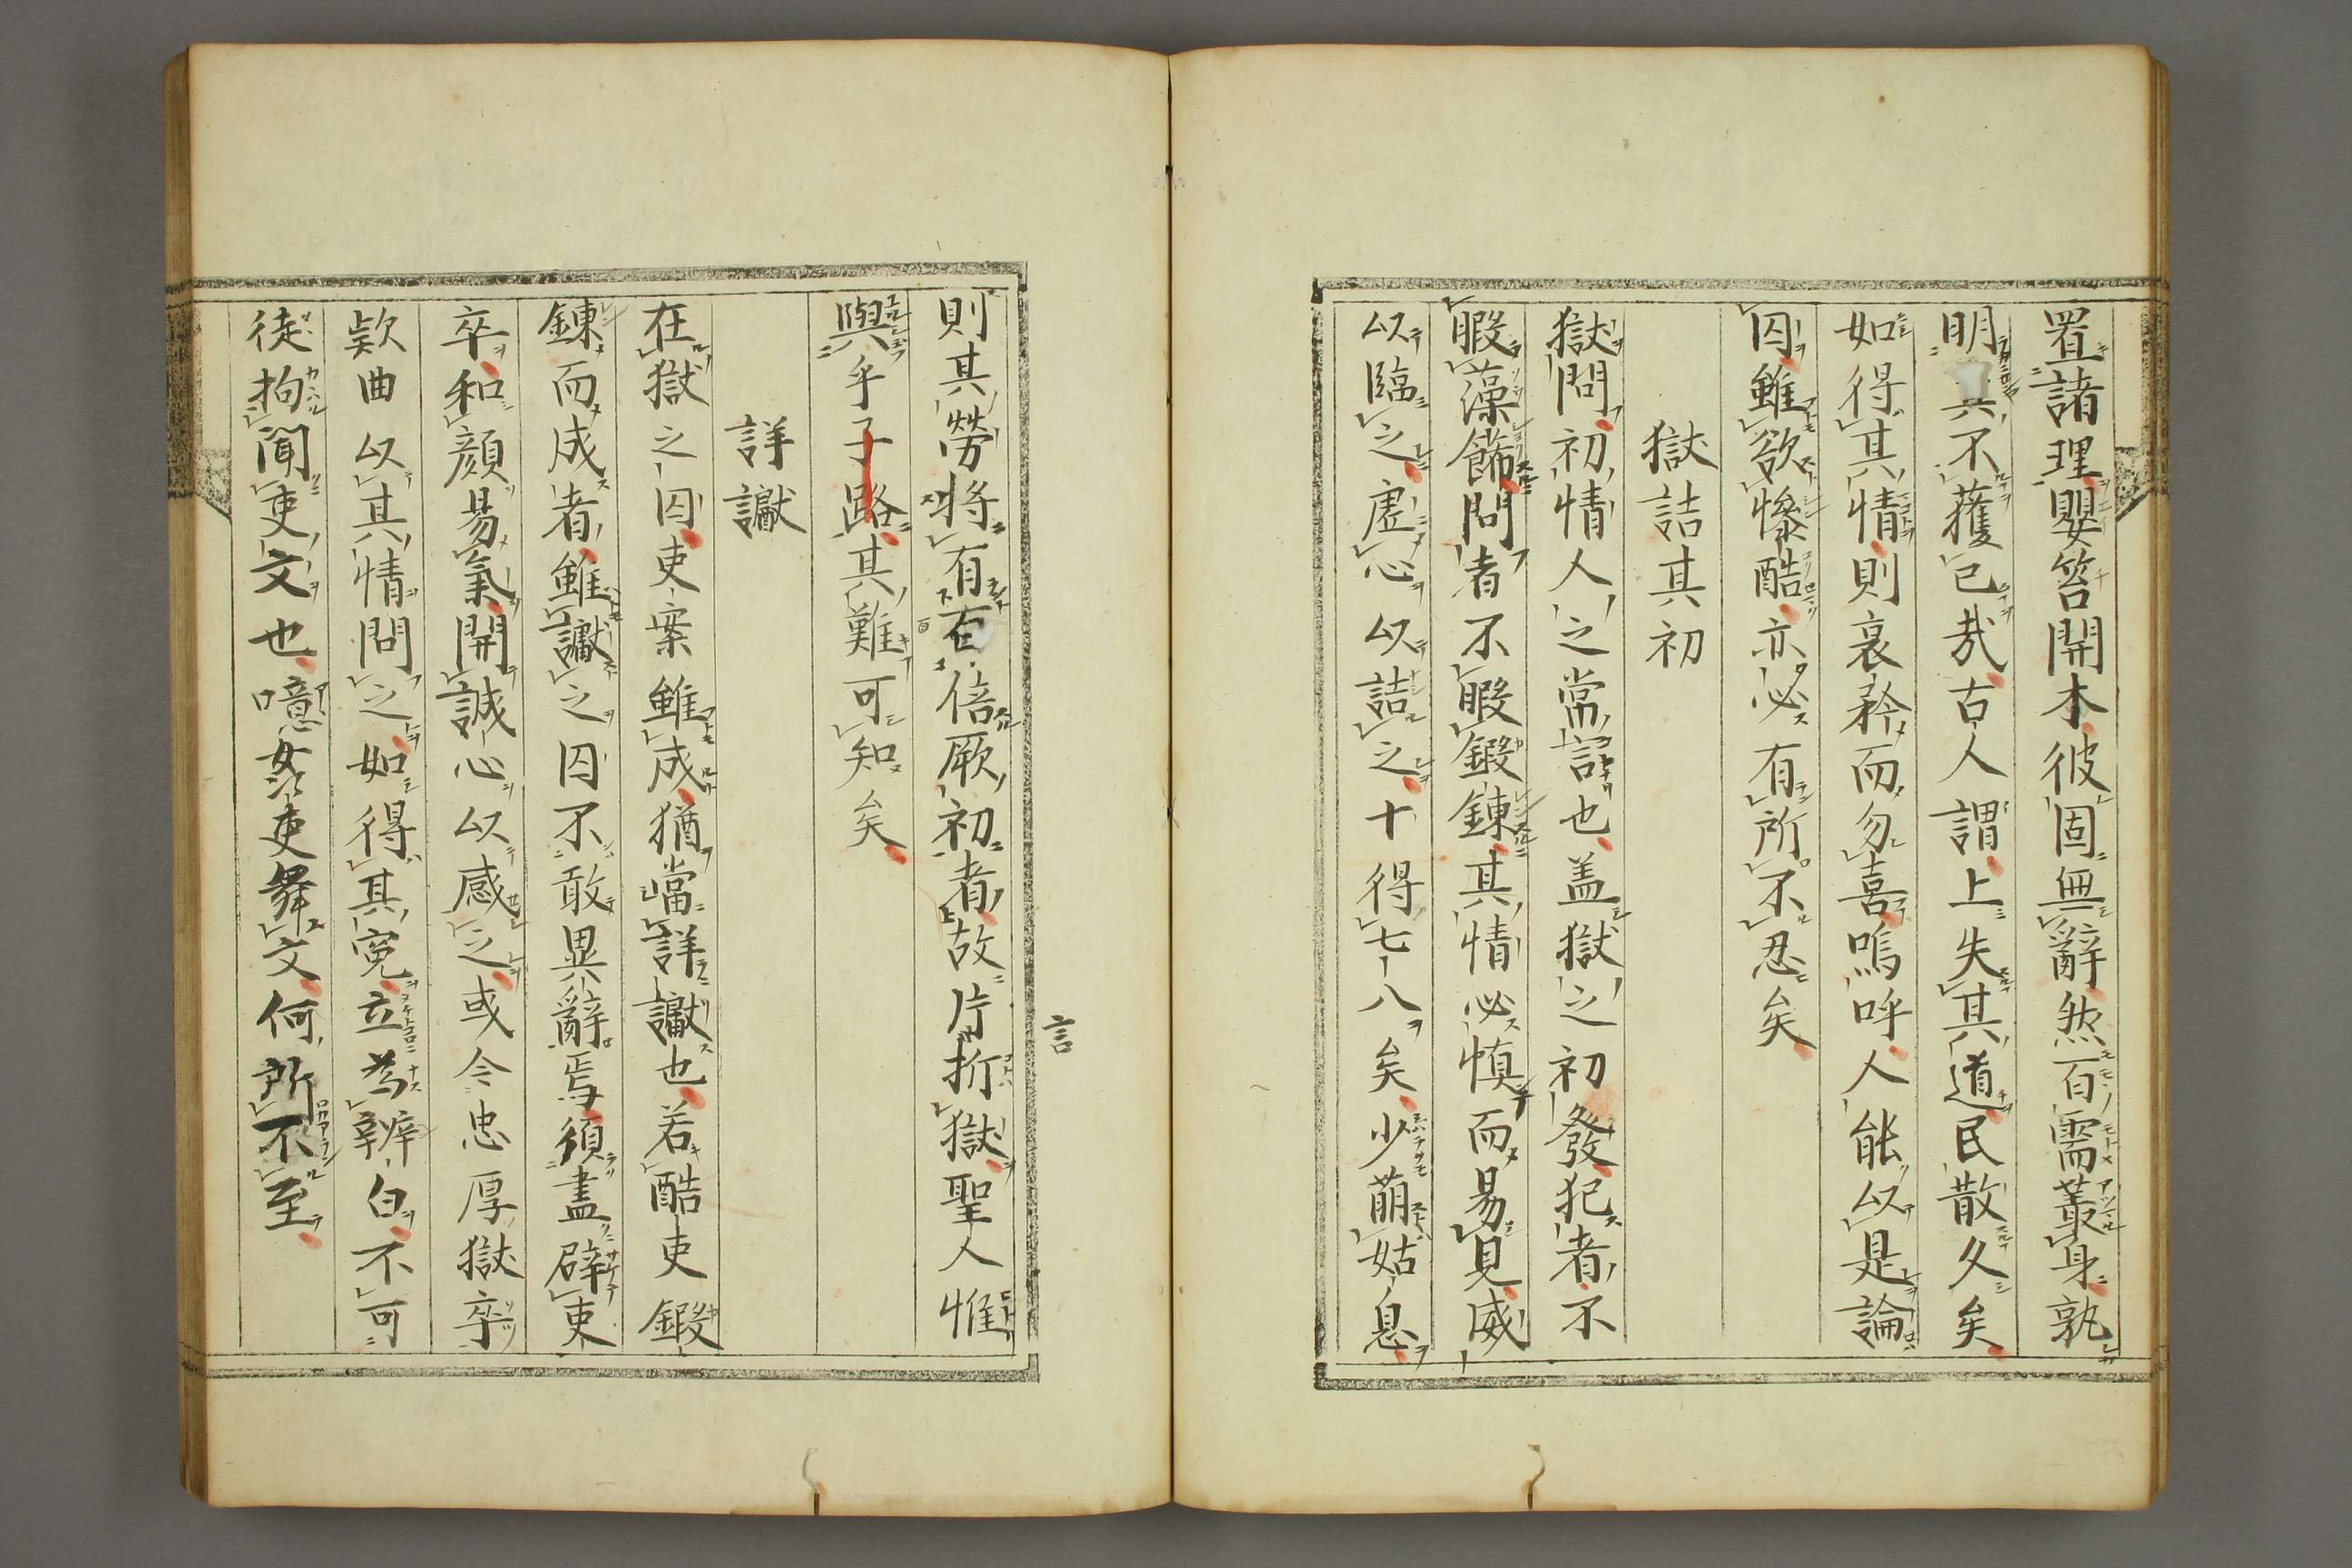 置諸理嬰笞開木彼固無辭然百需叢身孰
明其不獲已哉古人謂上失其道民散久矣
如得其情則哀矜而勿喜嗚呼人能以是論
囚雖欲慘酷亦必有所不忍矣
獄詰其初
獄問初情人之常言也盖獄之初發犯者不
暇藻飾問者不暇鍛錬其情必慎而易見威
以臨之虛心以詰之十得七八矣少萠姑息
則其勞將有百倍厥初者故片折獄聖人惟
與乎子路其難可知矣
詳讞
在獄之囚吏案雖成猶當詳讞也若酷吏鍛
錬而成者雖讞之囚不敢異辭焉須盡辟吏
卒和顔易氣開誠心以感之或令忠厚獄卒
欵曲以其情問之如得其寃立為辨白不可
徒拘聞吏文也噫姦吏舞文何所不至
言